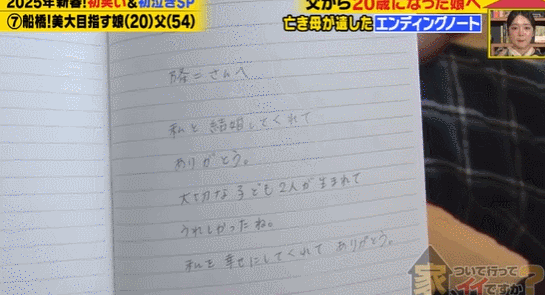 2025年新春!初笑い&初泣きSP
⑦船橋!美大目指す娘(20)父(54)
父から20歳になった娘へ
亡き母が遺したエンディングノート
さんへ
私と結婚してくれて
ありがとう。
大切な子ども2人が生まれて
うれしかったね。
私を幸せにしてくれてありがとう。
家、ついて行ってイイですか?